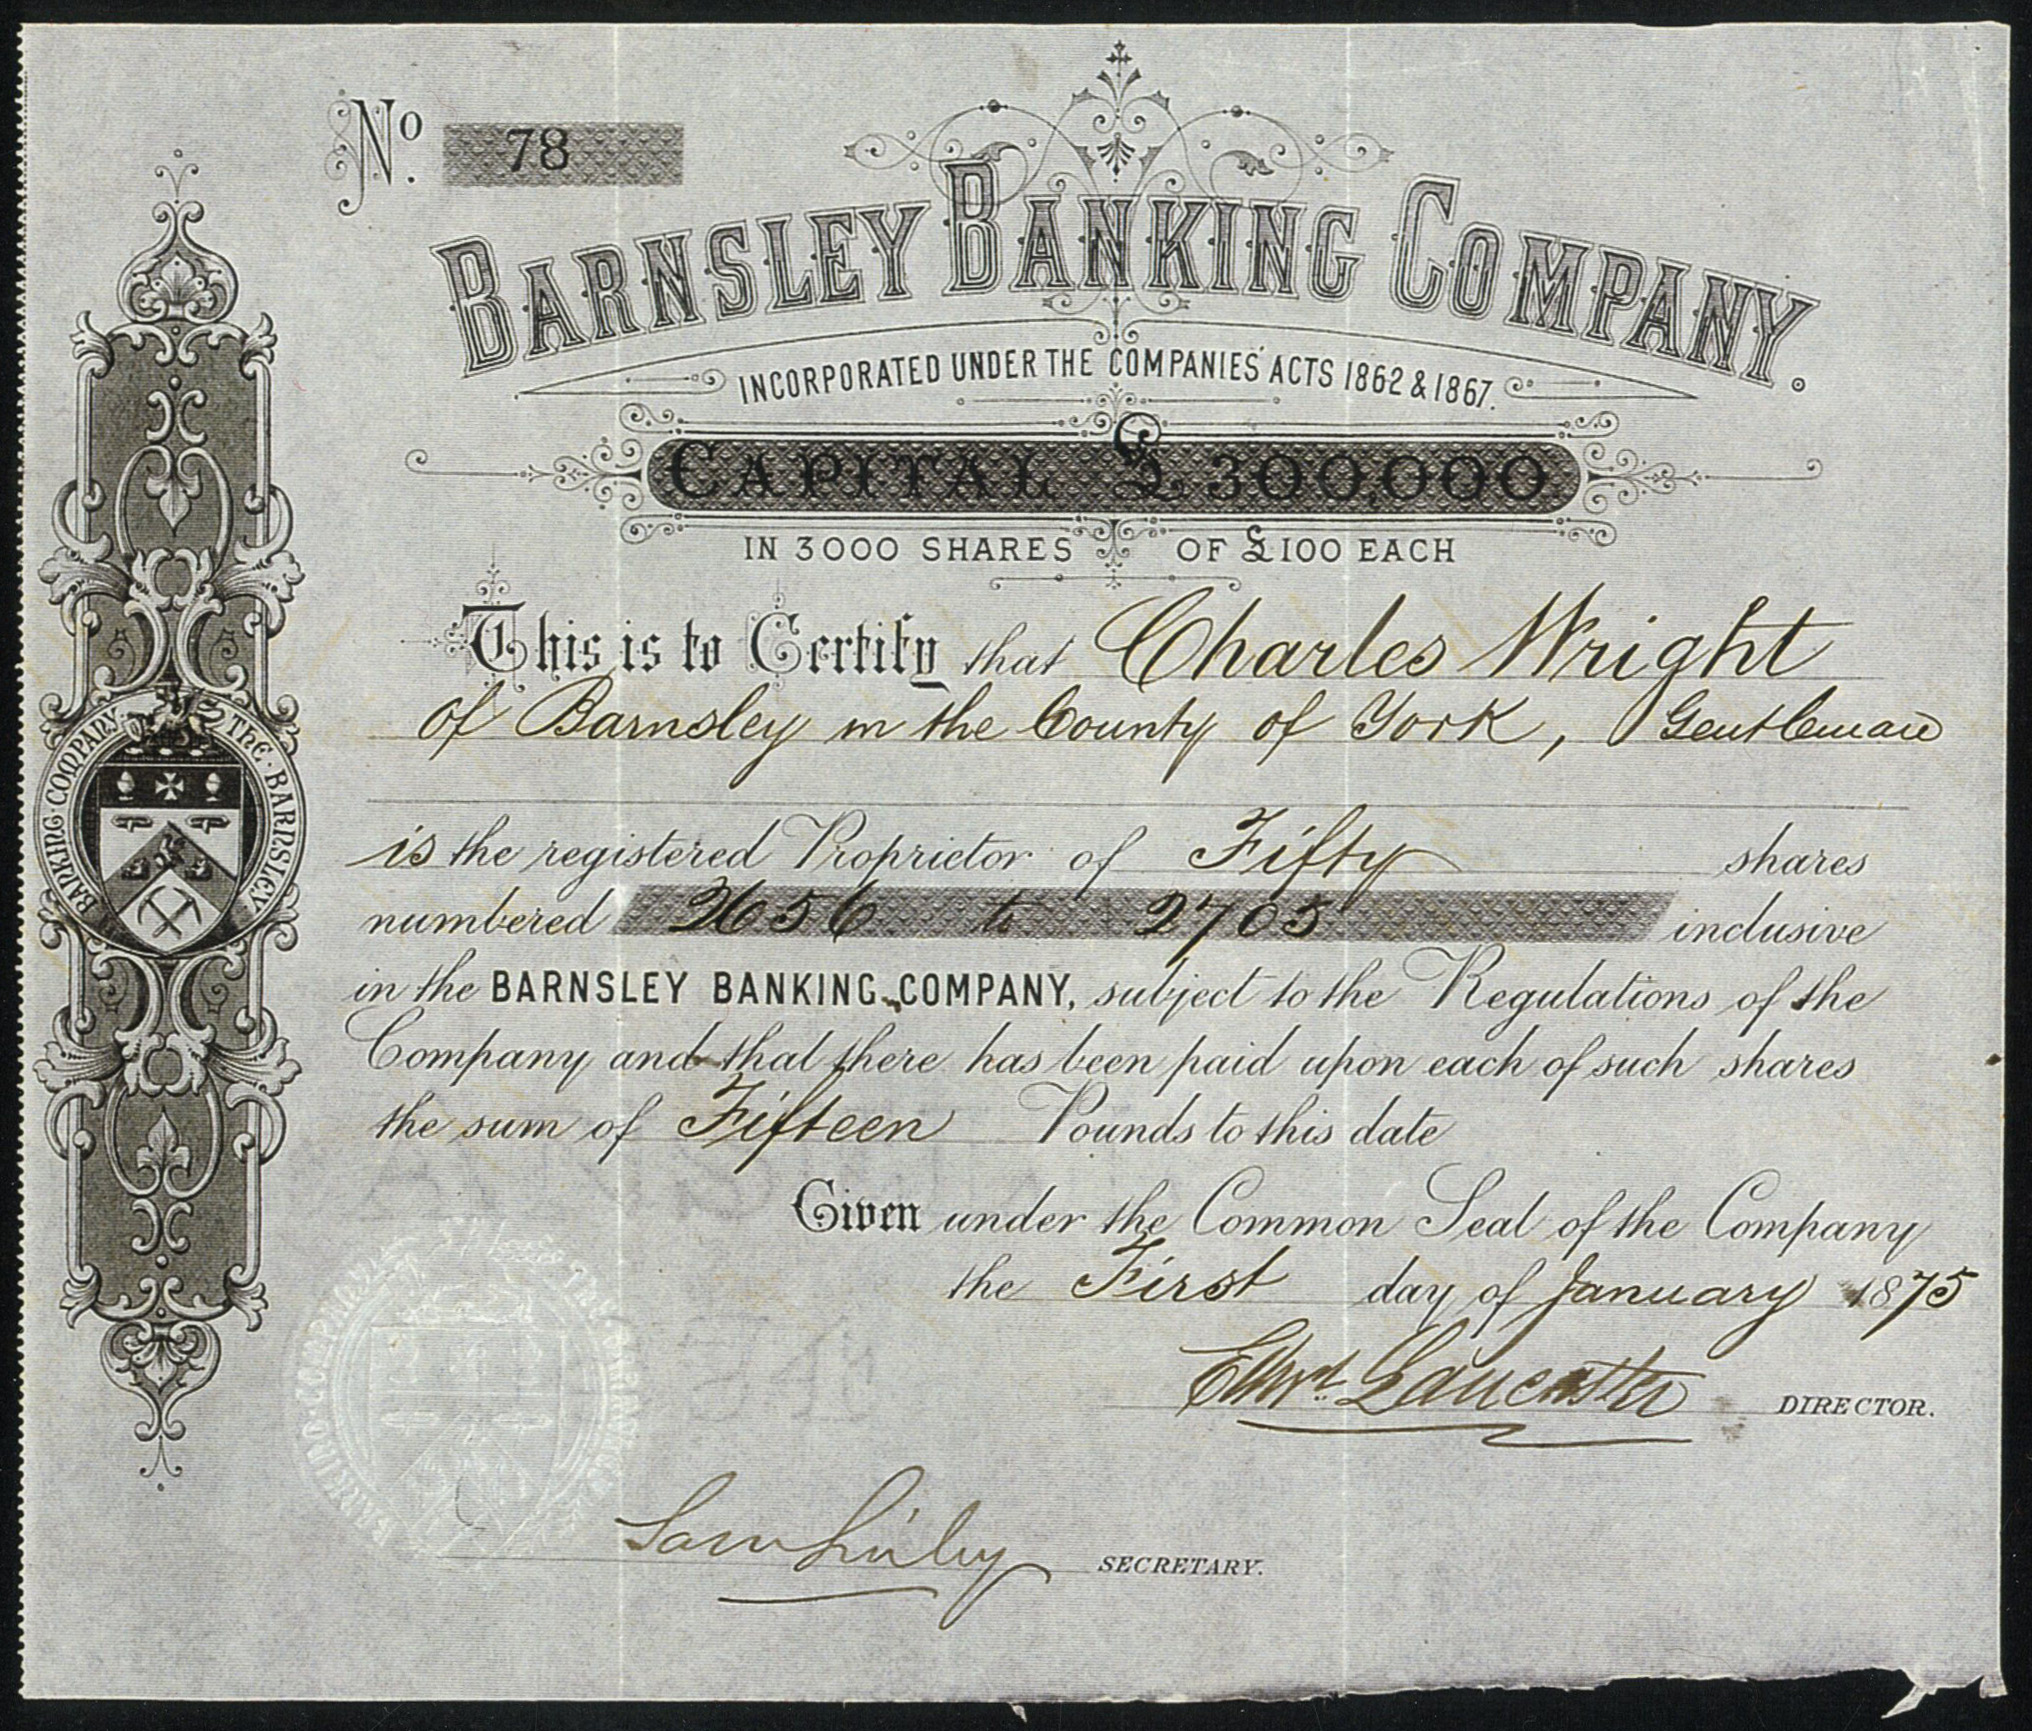 No. 78
BARNSLEY BANKING COMPANY.
INCORPORATED UNDER THE COMPANIES' ACTS 1862 & 1867.
CAPITAL £300,000.
IN 3000 SHARES OF £100 EACH
This is to Certify that Charles Wright
of Barnsley in the County of York, Gentleman
is the registered Proprietor of Fifty shares
numbered 2656 to 2705 inclusive
in the BARNSLEY BANKING COMPANY, subject to the Regulations of the
Company and that there has been paid upon each of such shares
the sum of Fifteen Pounds to this date
Given under the Common Seal of the Company
the First day of January 1875
Edwd. Lancaster DIRECTOR.
SECRETARY.
THE BARNSLEY BANKING COMPANY
THE BARNSLEY BANKING COMPANY